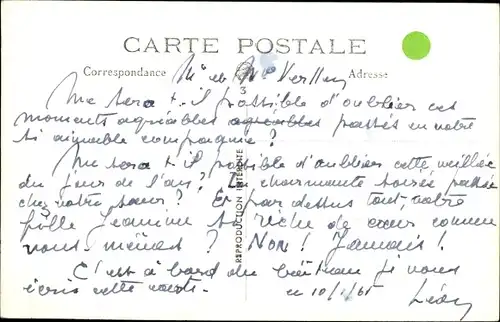 CARTE POSTALE
Correspondance Mr et Mme Adresse
3
Me sera t-il possible d'oublier ces
moments agréables agréables passés en votre
si aimable compagnie?
Me sera t il possible d'oublier cette veillée
du jour de l'an? La charmante soirée passée
chez votre sœur? Et par dessus tout, votre
Jeanine si riche de cœur comme
vous-mêmes? Non! Jamais!
C'est à bord du bateau je vous
écris cette carte.
REPRODUCTION INTERDITE
le 10/1/61
Léon